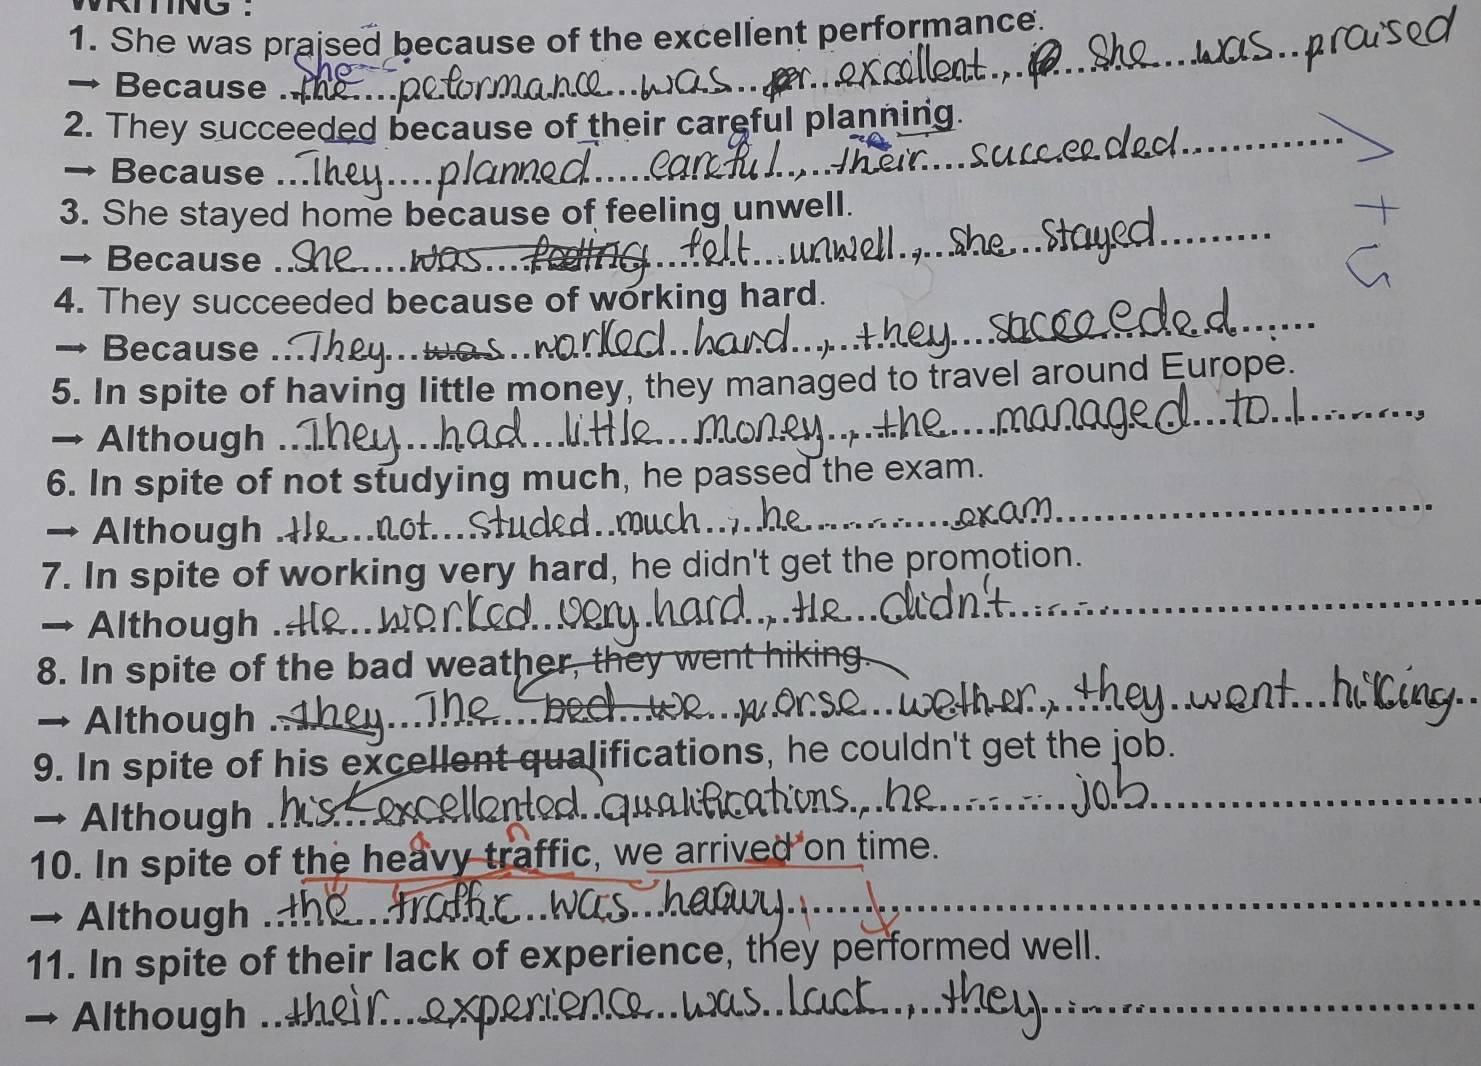 WRITING :
1. She was praised because of the excellent performance.
She
→ Because ..the....peformance...was......excellent..,.....She...was...praised
2. They succeeded because of their careful planning.
→ Because ...They....planned.....careful..,..their...succeeded..............
3. She stayed home because of feeling unwell.
→ Because ..She....was....feeling...felt...unwell..,..She...stayed.........
4. They succeeded because of working hard.
→ Because ...They...was...worked..hard..,..they....succeeded......
5. In spite of having little money, they managed to travel around Europe.
→ Although ..They...had...little...money..,..the....managed...to..t.........
6. In spite of not studying much, he passed the exam.
→ Although .He...not....studed..much..,..he............exam..................
7. In spite of working very hard, he didn't get the promotion.
→ Although ..He...worked..very.hard..,.He...didn't..................
8. In spite of the bad weather, they went hiking.
→ Although ..they...The....bed...we...worse...wether..,..they..went...hiking..
9. In spite of his excellent qualifications, he couldn't get the job.
→ Although .his....excellented..qualifications..,.he...........job..................
10. In spite of the heavy traffic, we arrived on time.
→ Although ..the...traffic...was...heavy..,....................
11. In spite of their lack of experience, they performed well.
→ Although ..their...experience...was..lack..,..they....................